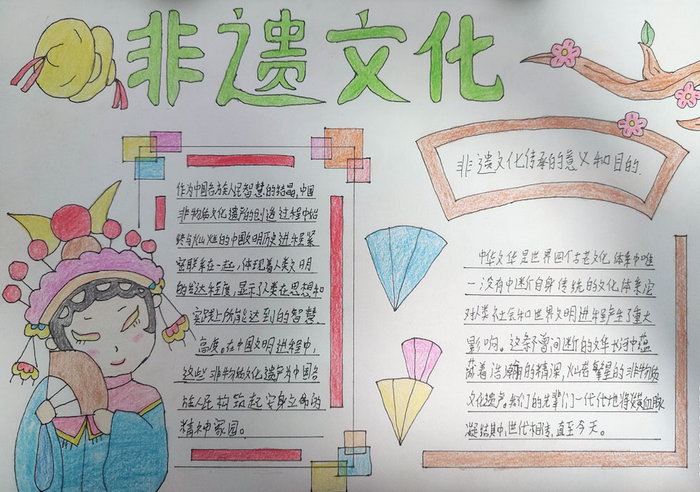 非遗文化
作为中国各族人民智慧的结晶,中国
非物质文化遗产的创造过程中始
终与灿烂的中国文明历史进程紧
密联系在一起,体现着人类文明
的发达程度,显示了人类在思想和
实践上所能达到的智慧
高度。在中国文明进程中,
这些非物质文化遗产为中国各
族人民构筑起安身立命的
精神家园。
非遗文化传承的意义和目的.
中华文华是世界四个古老文化体系中唯
一没有中断自身传统的文化体系它
对人类社会和世界文明进程产生了重大
影响。这条不曾间断的文华长河中蕴
藏着浩瀚的精深,灿若繁星的非物质
文化遗产。我们的先辈们一代代地将血脉
凝结其中,世代相传,直至今天。